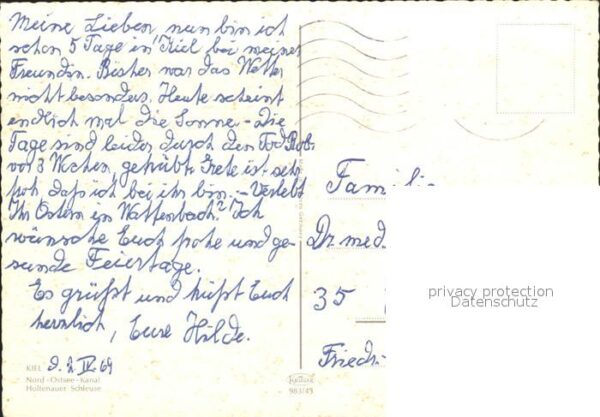 Meine Lieben, nun bin ich
schon 5 Tage in Kiel bei meiner
Freundin. Bisher war das Wetter
nicht besonders. Heute scheint
endlich mal die Sonne - Die
Tage sind leider durch den Tod Rob.
vor 3 Wochen getrübt. Grete ist sehr
froh, daß ich bei ihr bin. - Verlebt
Ihr Ostern in Wattenbach? Ich
wünsche Euch frohe und ge-
sunde Feiertage.
Es grüßt und küßt Euch
herzlich, Eure Hilde.
d. 2. IV. 69
KIEL
Nord-Ostsee-Kanal
Holtenauer Schleuse
Familie
Dr. med.
35
Friedr.
privacy protection
Datenschutz
983/45